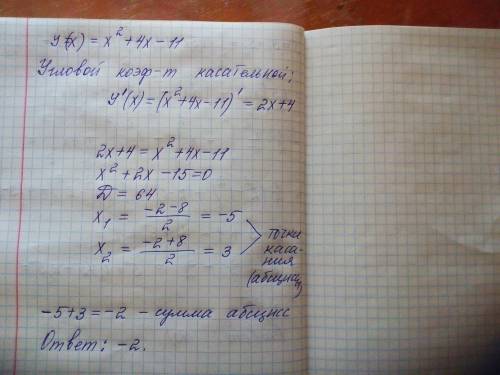 y(x) = x² + 4x - 11
Угловой коэф-т касательной:
y'(x) = (x² + 4x - 11)' = 2x + 4
2x + 4 = x² + 4x - 11
x² + 2x - 15 = 0
D = 64
x₁ = (-2 - 8)/2 = -5
x₂ = (-2 + 8)/2 = 3
точки
каса-
ния
(абсциссы)
-5 + 3 = -2 - сумма абсцисс
Ответ: -2.